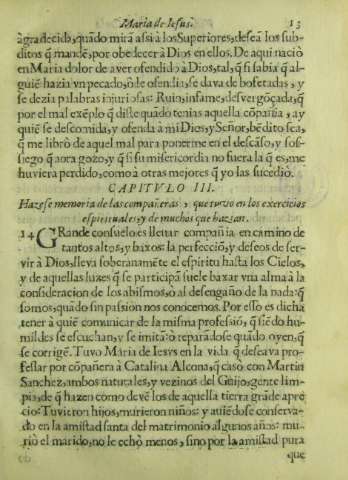 Maria de Iesus. 13
agradecida, quãdo mirã assi à los Superiores, deseã los sub-
ditos q̃ mandẽ, por obedecer à Dios en ellos. De aqui naciò
en Maria dolor de aver ofendido à Dios, tal, q̃ si sabia q̃ al-
guiẽ hazia vn pecado, ò le ofendia, se dava de bofetadas, y
se dezia palabras injuriosas: Ruin, infame, desvergõçada, q̃
por el mal exẽplo q̃ diste quãdo tenias aquella cõpañia, ay
quiẽ se descomida, y ofenda à mi Dios, y Señor, bẽdito sea,
q̃ me librò de aquel mal para ponerme en el descãso, y sos-
siego q̃ aora gozo, y q̃ si su misericordia no fuera la q̃ es, me
huviera perdido, como à otras mejores q̃ yo las sucediò.
CAPITVLO III.
Hazese memoria de las compañeras, que tuvo en los exercicios
espirituales, y de muchos que hazian.
14 GRande consuelo es llevar compañia en camino de
tantos altos, y baxos: la perfecciõ, y deseos de ser-
vir à Dios, lleva soberanamẽte el espiritu hasta los Cielos,
y de aquellas luzes q̃ se participã suele baxar vna alma à la
consideracion de los abismos, ò al desengaño de la nada: q̃
somos, quãdo sin passion nos conocemos. Por esso es dicha
tener à quiẽ comunicar de la misma professiõ, q̃ siẽdo hu-
mildes se escuchan, y se imitã: ò reparãdose quãdo oyen, q̃
se corrigẽ. Tuvo Maria de Iesvs en la vida q̃ deseava pro-
fessar por cõpañera à Catalina Alcona, q̃ casò con Martin
Sanchez, ambos naturales, y vezinos del Guijo, gente lim-
pia, de q̃ hazen como devẽ los de aquella tierra grãde apre
cio: Tuvieron hijos, murieron niños: y aviẽdose conserva-
do en la amistad santa del matrimonio algunos años: mu-
riò el marido, no le echò menos, sino por la amistad pura
que